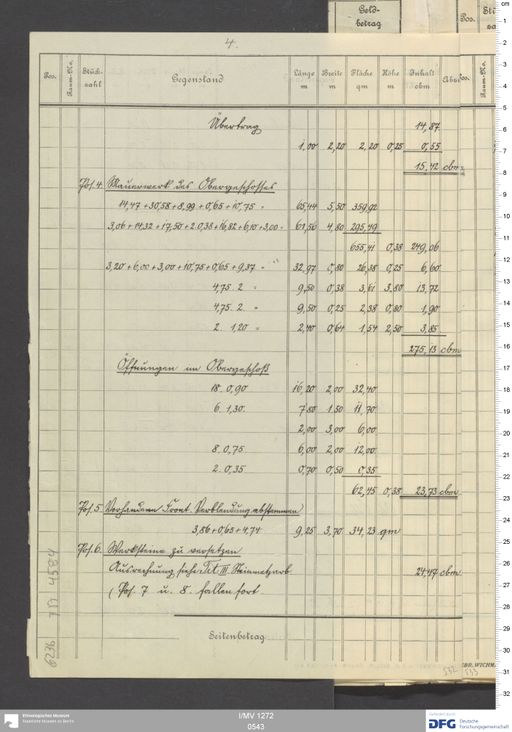 4.
Pos. Raum-No. Stückzahl Gegenstand Länge m Breite m Fläche qm Höhe m Inhalt cbm
Übertrag 14,87
1,00 2,20 2,20 0,25 0,55
15,42 cbm
Pos. 4. Mauerwerk des Obergeschosses
14,47 + 30,58 + 8,99 + 0,65 + 10,75 = 65,44 5,50 359,92
3,06 + 14,32 + 17,50 + 2 . 0,38 + 16,82 + 6,10 + 3,00 = 61,56 4,80 295,49
655,41 0,38 249,06
3,20 + 6,00 + 3,00 + 10,75 + 0,65 + 9,37 = 32,97 0,80 26,38 0,25 6,60
4,75 . 2 = 9,50 0,38 3,61 3,80 13,72
4,75 . 2 = 9,50 0,25 2,38 0,80 1,90
2 . 1,20 = 2,40 0,64 1,54 2,50 3,85
275,13 cbm
Öffnungen im Obergeschoß
18 . 0,90 16,20 2,00 32,40
6 . 1,30 7,80 1,50 11,70
2,00 3,00 6,00
8 . 0,75 6,00 2,00 12,00
2 . 0,35 0,70 0,50 0,35
62,45 0,38 23,73 cbm
Pos. 5 Vorhandene Front Verblendung abstemmen
3,86 + 0,65 + 4,74 9,25 3,70 34,23 qm
Pos. 6. Werksteine zu versetzen
Ausrechnung siehe Tit. III Steinmetzarb 24,47 cbm
(Pos. 7 u. 8. fallen fort.
Seitenbetrag
Geldbetrag
Pos.
532 533
I/MV 1272
0543
Ethnologisches Museum
Staatliche Museen zu Berlin
DFG Deutsche Forschungsgemeinschaft